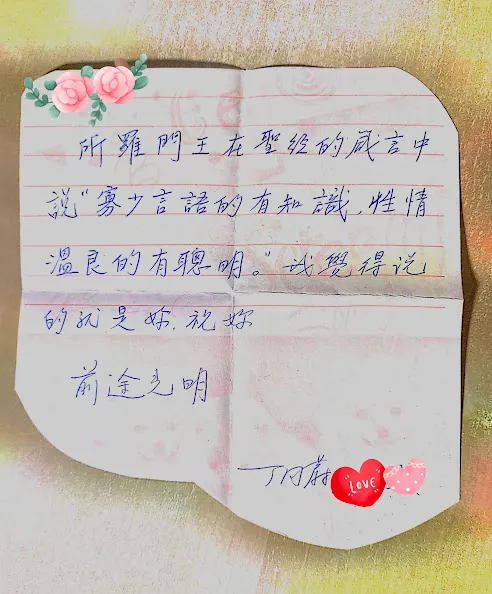 所羅門王在聖经的箴言中
說“寡少言語的有知識,性情
溫良的有聰明。”我覺得说
的就是妳,祝妳
前途光明
丁
LOVE